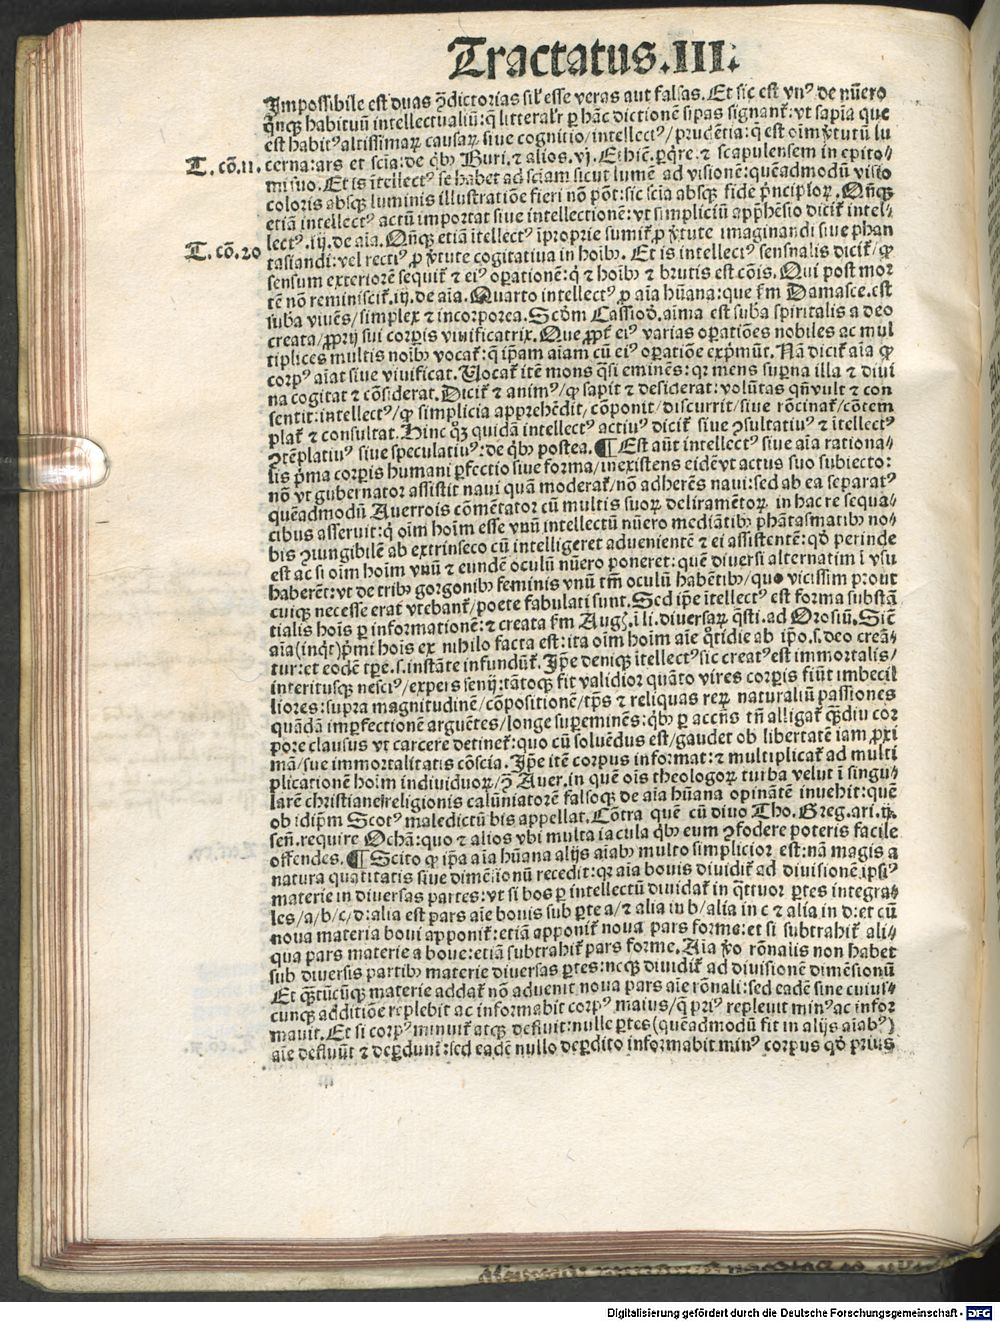 Tractatus.III.
Impossibile est duas ꝯ̄dictorias sil' esse veras aut falsas. Et sic est vnꝰ de nūero
qnqꝫ habituū intellectualiū: q̄ litteral'r ꝑ hāc dictionē sipas signant̄: vt sapīa que
est habitꝰ altissimaꝝ causaꝝ siue cognitio/intellectꝰ/prudētia: q̄ est oīm v̄tutū lu
T. cō. 11. cerna: ars et scīa: de qb᷒ Buri. ⁊ alios. vj. Ethic̄. ꝑq̄re. ⁊ scapulensem in epito⸗
mi suo. Et is ītellectꝰ se habet ad sciam sicut lumē ad visionē: quēadmodū visio
coloris absqꝫ luminis illustratiōe fieri nō pōt: sic scīa absqꝫ fide p̄ncipioꝝ. Qn̄qꝫ
etiā intellectꝰ actū importat siue intellectionē: vt simpliciū app̄hēsio dicit̄ intel⸗
T. cō. 20 lectꝰ. iij. de aīa. Qn̄qꝫ etiā ītellectꝰ īproprie sumit̄ ꝓ v̄tute imaginandi siue phan
tasiandi: vel rectiꝰ ꝓ v̄tute cogitatiua in hoīb᷒. Et is intellectꝰ sensualis dicit̄/ ꝙ
sensum exteriorē sequit̄ ⁊ eiꝰ oꝑationē: q̄ ⁊ hoīb᷒ ⁊ brutis est cōis. Qui post mor
tē nō reminiscit̄. iij. de aīa. Quarto intellectꝰ ꝓ aīa hūana: que fm̄ Damasce. est
suba viuēs/simplex ⁊ incorporea. Scd̄m Cassiod. aīma est suba spiritalis a deo
creata/ꝓprij sui corꝑis viuificatrix. Que ꝓpt̄ eiꝰ varias oꝑatiōes nobiles ac mul
tiplices multis noīb᷒ vocat̄: q̄ ip̄am aīam cū eiꝰ oꝑatiōe exp̄mūt. Nā dicit̄ aīa ꝙ
corpꝰ aīat siue viuificat. Vocat̄ itē mons q̄si eminēs: qꝛ mens suꝑna illa ⁊ diui
na cogitat ⁊ cōsiderat. Dicit̄ ⁊ animꝰ/ ꝙ sapit ⁊ desiderat: volūtas qn̄ vult ⁊ con
sentit: intellectꝰ/ ꝙ simplicia apprehēdit/cōponit/discurrit/siue rōcinat̄/cōtem
plat̄ ⁊ consultat. Hinc qꝫ quidā intellectꝰ actiuꝰ dicit̄ siue ꝯsultatiuꝰ ⁊ ītellectꝰ
ꝯtēplatiuꝰ siue speculatiuꝰ: de qb᷒ postea. ¶ Est aūt intellectꝰ siue aīa rationa⸗
lis p̄ma corꝑis humani ꝑfectio siue forma/inexistens eidē vt actus suo subiecto:
nō vt gubernator assistit naui quā moderat̄/nō adherēs naui: sed ab ea separatꝰ
quēadmodū Auerrois cōmētator cū multis suoꝝ deliramētoꝝ in hac re sequa⸗
cibus asseruit: q̄ oīm hoīm esse vnū intellectū nūero mediātib᷒ phātasmatib᷒ no⸗
bis ꝯiungibilē ab extrinseco cū intelligeret aduenientē ⁊ ei assistentē: qd̄ perinde
est ac si oīm hoīm vnū ⁊ eundē oculū nūero poneret: quē diuersi alternatim ī vsu
haberēt: vt de trib᷒ gorgonib᷒ feminis vnū tm̄ oculū habētib᷒/quo vicissim prout
cuiqꝫ necesse erat vtebant̄/poete fabulati sunt. Sed ip̄e ītellectꝰ est forma substā
tialis hoīs ꝑ informationē: ⁊ creata fm̄ Augꝰ. ī li. diuersaꝝ q̄sti. ad Orosiū. Sic̄
aīa (inq̄t) p̄mi hoīs ex nihilo facta est: ita oīm hoīm aīe q̄tidie ab ip̄o. s. deo creā⸗
tur: et eodē tꝑe. s. instāte infundūt̄. Ip̄e deniqꝫ ītellectꝰ sic creatꝰ est immortalis/
interitusqꝫ nesciꝰ/expers senij: tātoqꝫ fit validior quāto vires corꝑis fiūt imbecil
liores: supra magnitudinē/cōpositionē/tp̄s ⁊ reliquas reꝝ naturaliū passiones
quādā imꝑfectionē arguētes/longe suꝑeminēs: qb᷒ ꝑ accn̄s tn̄ alligat̄ q̄diu cor
pore clausus vt carcere detinet̄: quo cū soluēdus est/gaudet ob libertatē iam ꝓxi
mā/sue immortalitatis cōscia. Ip̄e itē corpus informat: ⁊ multiplicat̄ ad multi
plicationē hoīm indiuiduoꝝ/ꝯ̄ Auer. in quē oīs theologoꝝ turba velut ī singu⸗
larē christiane religionis calūniatorē falsoqꝫ de aīa hūana opinātē inuehit: quē
ob idip̄m Scotꝰ maledictū bis appellat. Cōtra quē cū diuo Tho. Greg. ari. ij.
sen̄. require Ochā: quo ⁊ alios vbi multa iacula qb᷒ eum ꝯfodere poteris facile
offendes. ¶ Scito ꝙ ip̄a aīa hūana alijs aīab᷒ multo simplicior est: nā magis a
natura quātitatis siue dimēsionū recedit: qꝛ aīa bouis diuidit̄ ad diuisionē ipsiꝰ
materie in diuersas partes: vt si bos ꝑ intellectū diuidat̄ in q̄ttuor ꝑtes integra⸗
les/a/b/c/d: alia est pars aīe bouis sub ꝑte a/⁊ alia in b/alia in c ⁊ alia in d: et cū
noua materia boui apponit̄: etiā apponit̄ noua pars forme: et si subtrahit̄ ali⸗
qua pars materie a boue: etiā subtrahit̄ pars forme. Aīa v̄o rōnalis non habet
sub diuersis partib᷒ materie diuersas ꝑtes: neqꝫ diuidit̄ ad diuisionē dimēsionū
Et q̄tūcūqꝫ materie addat̄ nō aduenit noua pars aīe rōnali: sed eadē sine cuius⸗
cunqꝫ additiōe replebit ac informabit corpꝰ maius/q̄ priꝰ repleuit minꝰ ac infor
mauit. Et si corpꝰ minuit̄ atqꝫ defluit: nulle ꝑtes (quēadmodū fit in alijs aīabꝰ)
aīe defluūt ⁊ deꝑdunt̄: sed eadē nullo deꝑdito informabit minꝰ corpus qd̄ prius
Digitalisierung gefördert durch die Deutsche Forschungsgemeinschaft - DFG